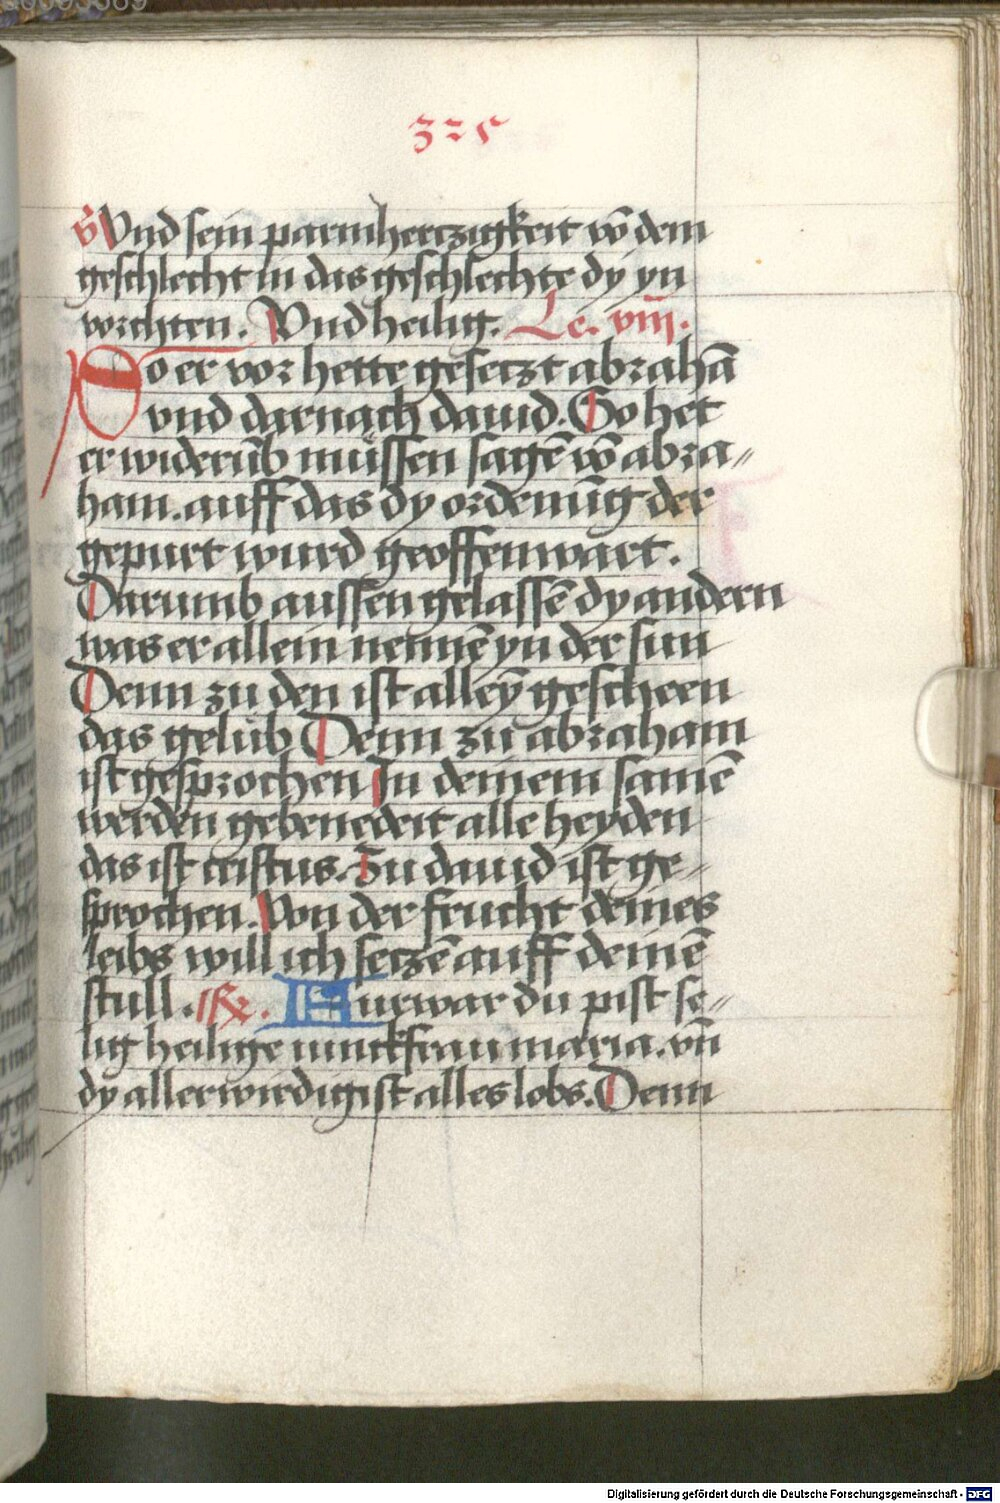 325
V̊ Vnd sein parmhertzigkeit vō dem
geschlecht in das geschlechte dy yn
vorchten. Vnd heilig. Le. viij.
Do er vor hette gesetzt abrahā
vnd darnach dauid. So het
er widerūb müssen sagē vō abra-
ham. auff das dy ordenūg der
gepurt wurd geoffenwart.
Darumb aussen gelassē dy andern
was er allein nennē yn der sun
Denn zu den ist alleȳ gescheen
das gelüb Denn zu abraham
ist gesprochen In deinem samē
werden gebenedeit alle heyden
das ist cristus. Zu dauid ist ge-
sprochen. Von der frucht deines
leibs will ich setzē auff deinē
stull. R. Furwar du pist se-
lig heilige iunckfrau maria. vn̄
dy allerwirdigist alles lobs. Denn
Digitalisierung gefördert durch die Deutsche Forschungsgemeinschaft - DFG